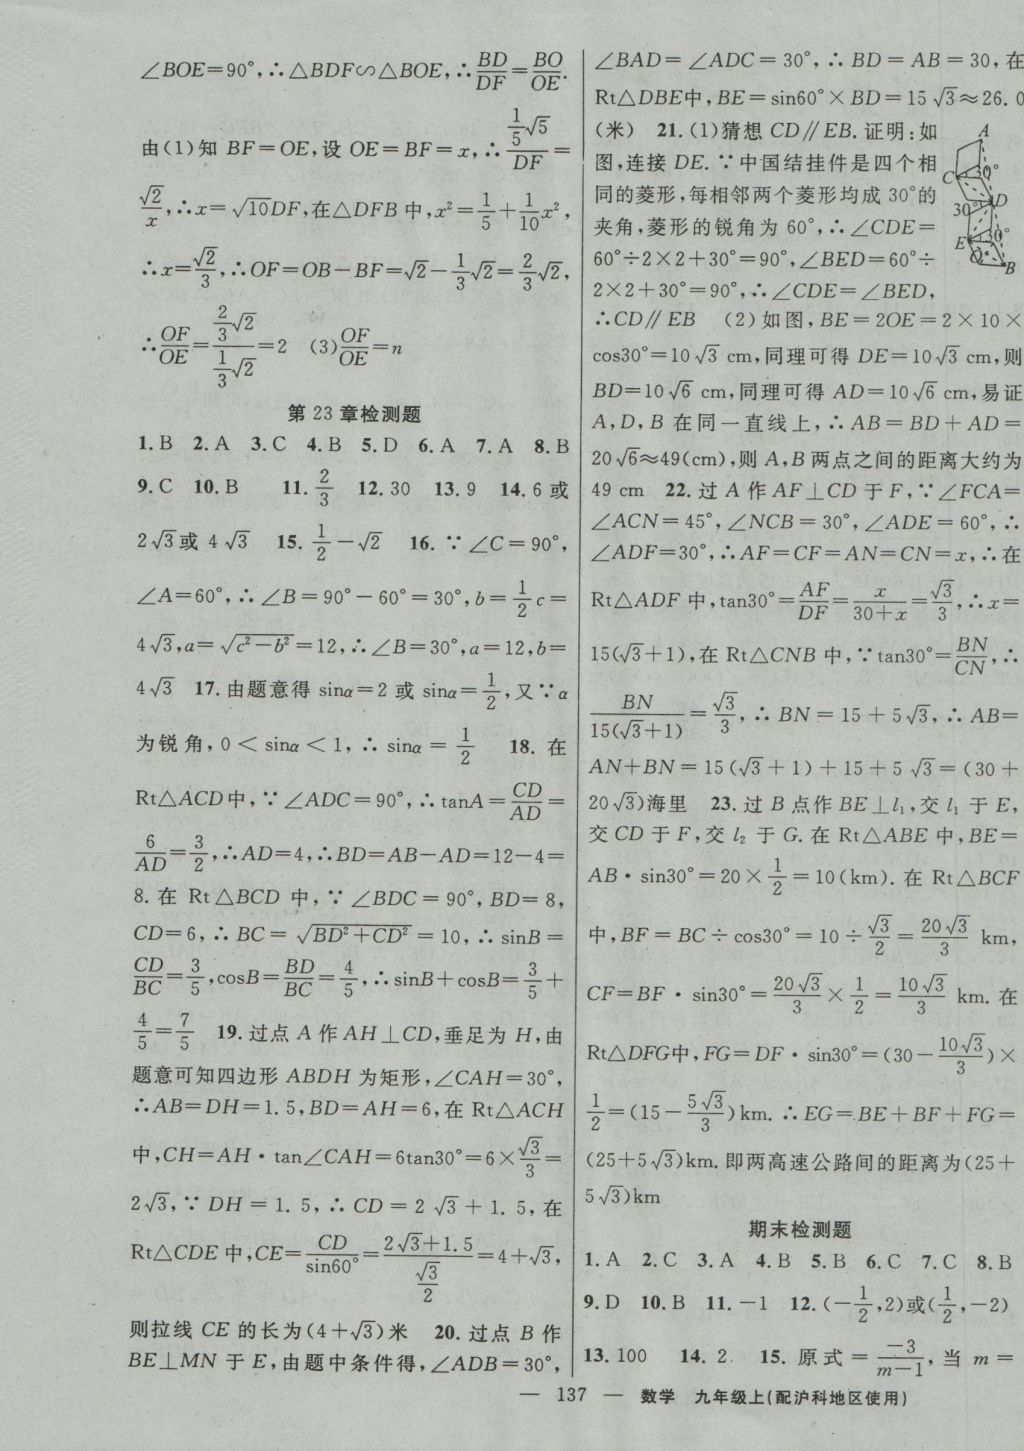 ∠BOE=90°,∴△BDF∽△BOE,∴BD/DF=BO/OE.
由(1)知 BF=OE,设 OE=BF=x,∴(1/5)√5/DF=
√2/x,∴x=√10DF,在△DFB 中,x²=1/5+1/10x²,
∴x=√2/3,∴OF=OB-BF=√2-1/3√2=2/3√2,
∴OF/OE=(2/3√2)/(1/3√2)=2 (3)OF/OE=n
第 23 章检测题
1. B 2. A 3. C 4. B 5. D 6. A 7. A 8. B
9. C 10. B 11. 2/3 12. 30 13. 9 14. 6 或
2√3或 4√3 15. 1/2-√2 16. ∵∠C=90°,
∠A=60°,∴∠B=90°-60°=30°,b=1/2c=
4√3,a=√(c²-b²)=12,∴∠B=30°,a=12,b=
4√3 17. 由题意得 sinα=2 或 sinα=1/2,又∵α
为锐角,0<sinα<1,∴sinα=1/2 18. 在
Rt△ACD中,∵∠ADC=90°,∴tanA=CD/AD=
6/AD=3/2,∴AD=4,∴BD=AB-AD=12-4=
8. 在 Rt△BCD 中,∵∠BDC=90°,BD=8,
CD=6,∴BC=√(BD²+CD²)=10,∴sinB=
CD/BC=3/5,cosB=BD/BC=4/5,∴sinB+cosB=3/5+
4/5=7/5 19. 过点 A 作 AH⊥CD,垂足为 H,由
题意可知四边形 ABDH 为矩形,∠CAH=30°,
∴AB=DH=1.5,BD=AH=6,在 Rt△ACH
中,CH=AH·tan∠CAH=6tan30°=6×√3/3=
2√3,∵DH=1.5,∴CD=2√3+1.5,在
Rt△CDE 中,CE=CD/sin60°=(2√3+1.5)/(√3/2)=4+√3,
则拉线 CE 的长为(4+√3)米 20. 过点 B 作
BE⊥MN 于 E,由题中条件得,∠ADB=30°,
∠BAD=∠ADC=30°,∴BD=AB=30,在
Rt△DBE中,BE=sin60°×BD=15√3≈26.0
(米) 21. (1)猜想 CD∥EB. 证明:如
图,连接 DE. ∵中国结挂件是四个相
同的菱形,每相邻两个菱形均成 30°的
夹角,菱形的锐角为 60°,∴∠CDE=
60°÷2×2+30°=90°,∠BED=60°÷
2×2+30°=90°,∴∠CDE=∠BED,
∴CD∥EB (2)如图,BE=2OE=2×10×
cos30°=10√3 cm,同理可得 DE=10√3 cm,则
BD=10√6 cm,同理可得 AD=10√6 cm,易证
A,D,B 在同一直线上,∴AB=BD+AD=
20√6≈49(cm),则 A,B 两点之间的距离大约为
49 cm 22. 过 A 作 AF⊥CD 于 F,∵∠FCA=
∠ACN=45°,∠NCB=30°,∠ADE=60°,∴
∠ADF=30°,∴AF=CF=AN=CN=x,∴在
Rt△ADF 中,tan30°=AF/DF=x/(30+x)=√3/3,∴x=
15(√3+1),在 Rt△CNB 中,∵tan30°=BN/CN,∴
BN/15(√3+1)=√3/3,∴BN=15+5√3,∴AB=
AN+BN=15(√3+1)+15+5√3=(30+
20√3)海里 23. 过 B 点作 BE⊥l₁,交 l₁ 于 E,
交 CD 于 F,交 l₂ 于 G. 在 Rt△ABE 中,BE=
AB·sin30°=20×1/2=10(km). 在 Rt△BCF
中,BF=BC÷cos30°=10÷√3/2=20√3/3 km,
CF=BF·sin30°=20√3/3×1/2=10√3/3 km. 在
Rt△DFG中,FG=DF·sin30°=(30-10√3/3)×
1/2=(15-5√3/3)km. ∴EG=BE+BF+FG=
(25+5√3)km. 即两高速公路间的距离为(25+
5√3)km
A
C
30°
D
30°
30°
E
O
B
期末检测题
1. A 2. C 3. A 4. B 5. B 6. C 7. C 8. B
9. D 10. B 11. -1 12. (-1/2,2)或(1/2,-2)
13. 100 14. 2 15. 原式=-3/(m-1),当 m=
— 137 — 数学 九年级上(配沪科地区使用)